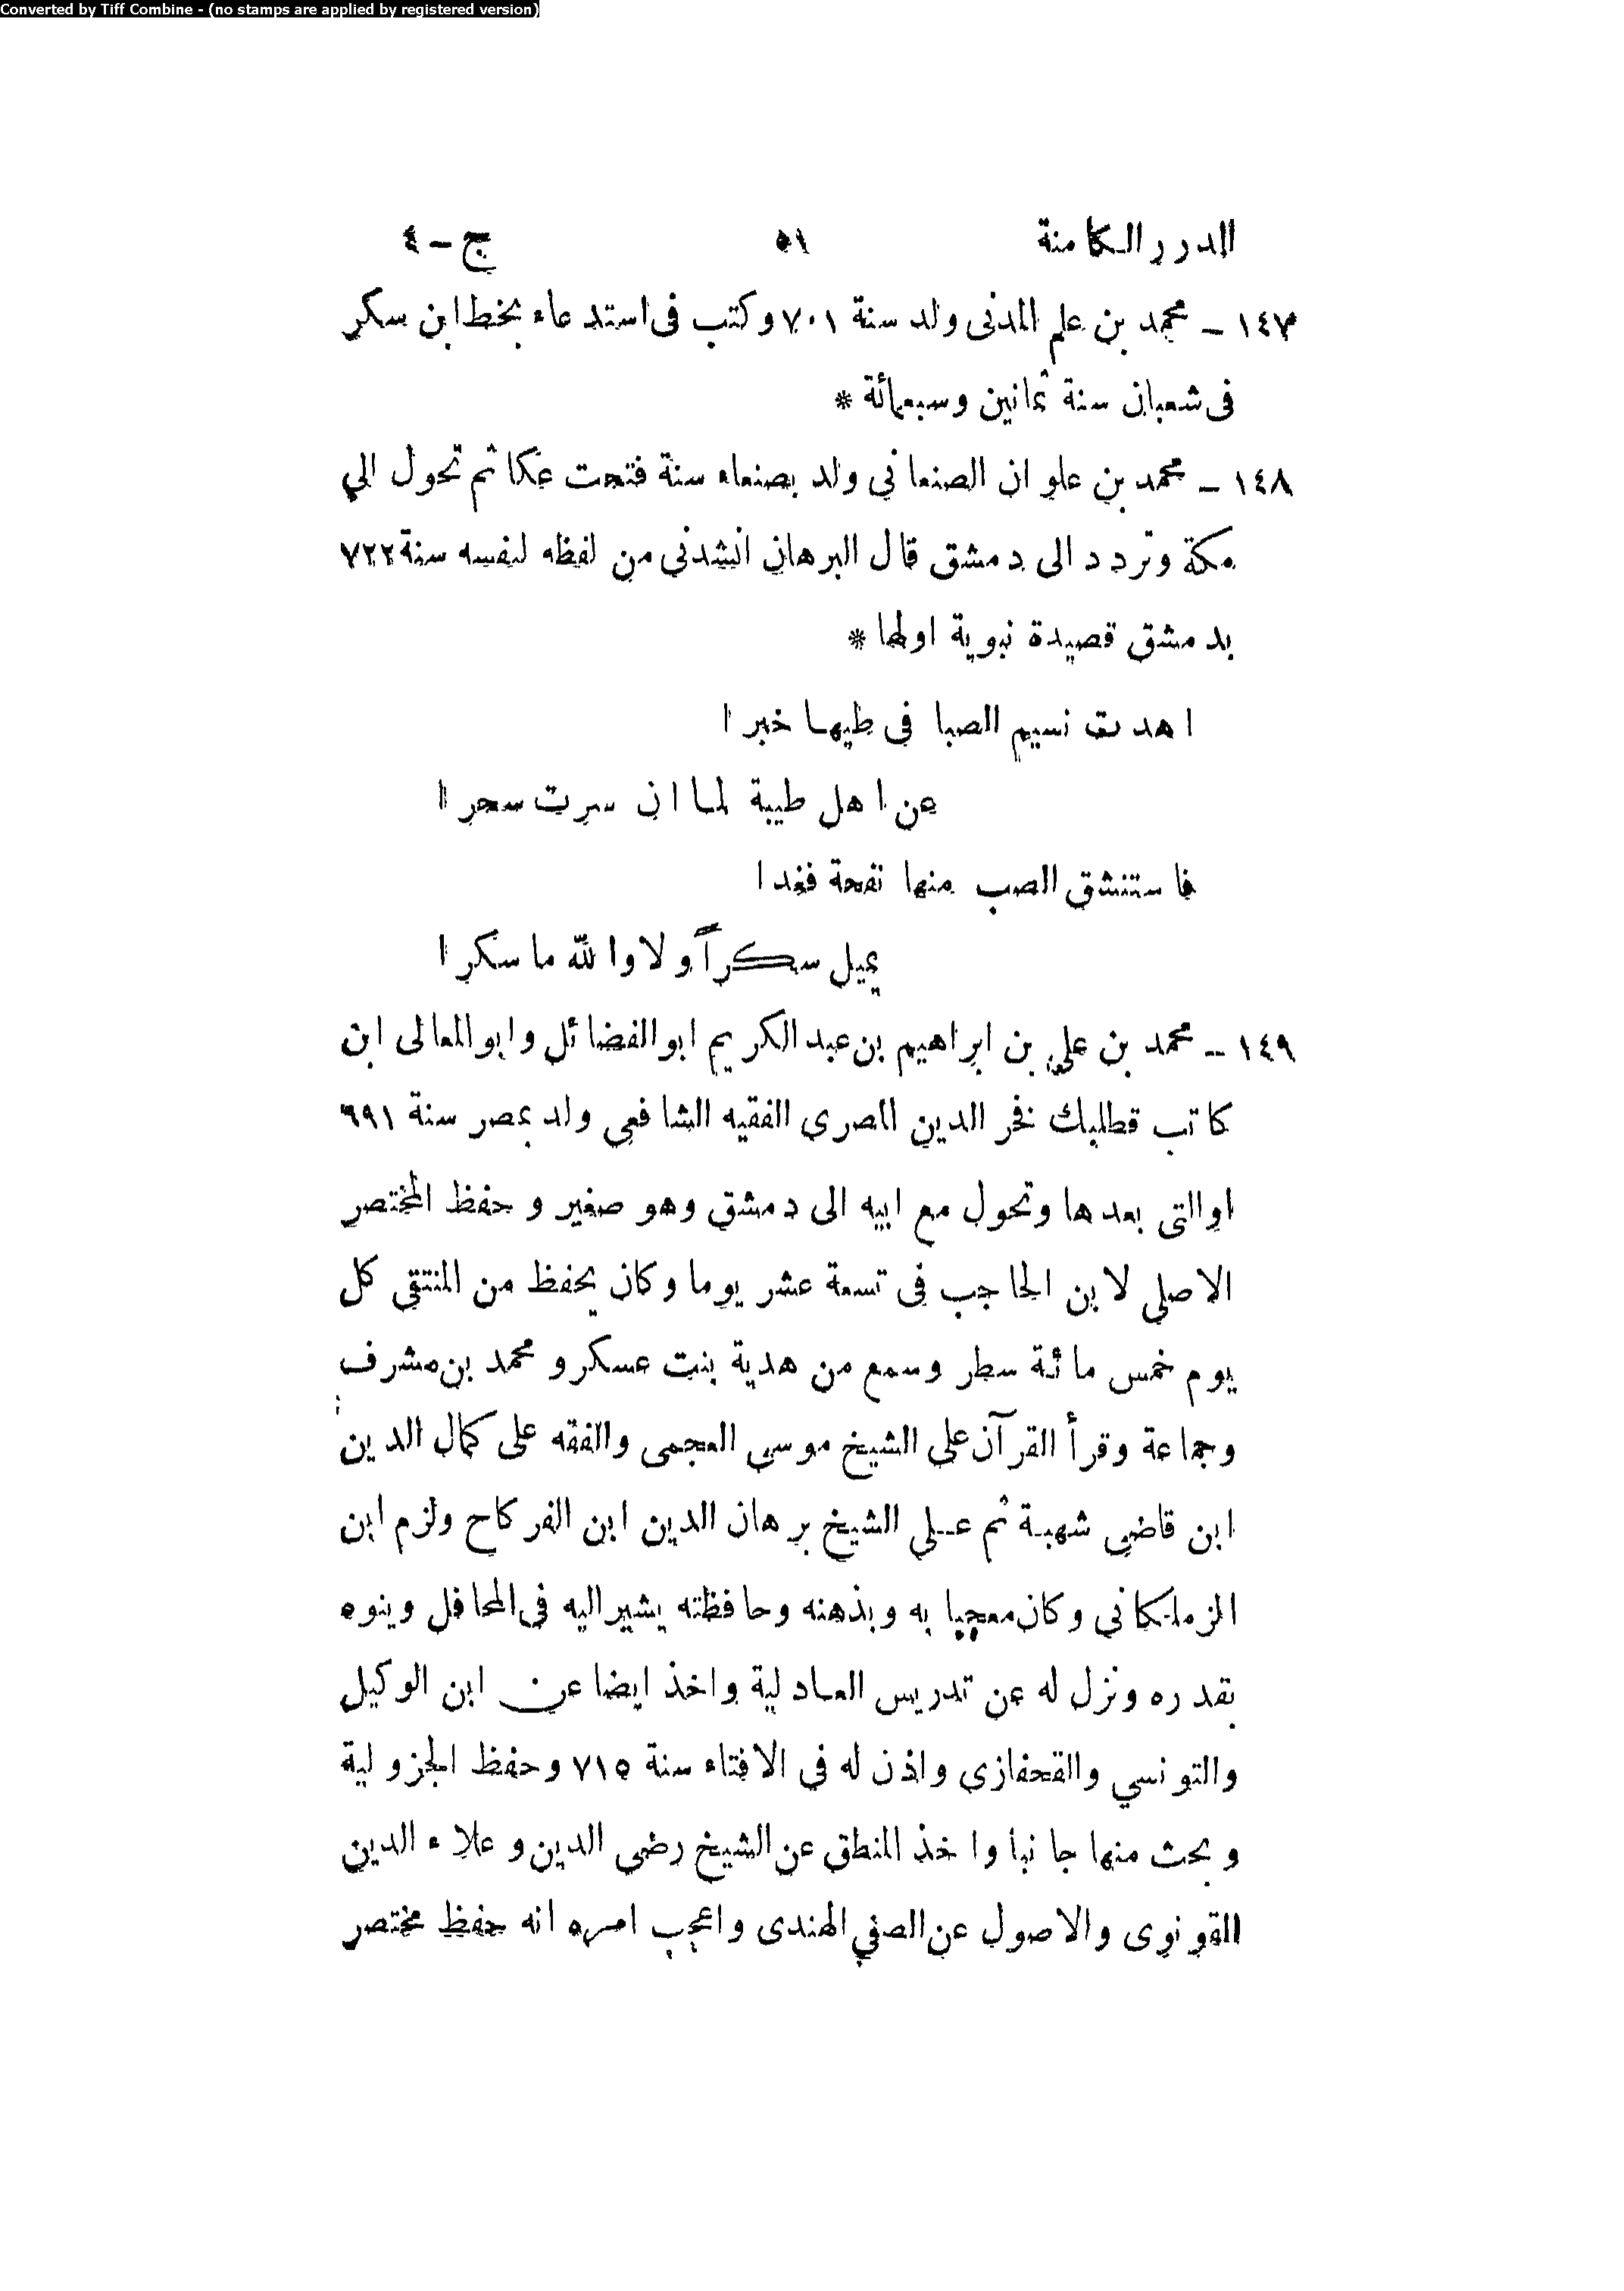 Converted by Tiff Combine - (no stamps are applied by registered version)
الدرر الكامنة ٥١ ج - ٤
١٤٧ - محمد بن علم المدنى ولد سنة ٧٠١ وكتب فى استدعاء بخط ابن سكر
فى شعبان سنة ثمانين وسبعمائة *
١٤٨ - محمد بن علوان الصنعانى ولد بصنعاء سنة فتحت عكا ثم تحول الى
مكة وتردد الى دمشق قال البرهان انشدنى من لفظه لنفسه سنة ٧٢٢
بدمشق قصيدة نبوية اولها *
اهدت نسيم الصبا فى طيها خبرا
عن اهل طيبة لما ان سرت سحرا
فاستنشق الصب منها نفحة فغدا
يميل سكراً ولا والله ما سكرا
١٤٩ - محمد بن على بن ابراهيم بن عبد الكريم ابو الفضائل وابو المعالى ابن
كاتب قطلبك فخر الدين المصرى الفقيه الشافعى ولد بمصر سنة ٦٩١
او التى بعدها وتحول مع ابيه الى دمشق وهو صغير وحفظ المختصر
الاصلى لابن الحاجب فى تسعة عشر يوما وكان يحفظ من المنتقى كل
يوم خمس مائة سطر وسمع من هدية بنت عسكر ومحمد بن مشرف
وجماعة وقرأ القرآن على الشيخ موسى العجمى والفقه على كمال الدين
ابن قاضى شهبة ثم على الشيخ برهان الدين ابن الفركاح ولزم ابن
الزملكانى وكان معجبا به وبذهنه وحافظته يشير اليه فى المحافل وينوه
بقدره ونزل له عن تدريس العادلية واخذ ايضا عن ابن الوكيل
والتونسي والقحفازى واذن له فى الافتاء سنة ٧١٥ وحفظ الجزولية
وبحث منها جانبا واخذ المنطق عن الشيخ رضى الدين وعلاء الدين
القونوى والاصول عن الصفى الهندى واعجب امره انه حفظ مختصر